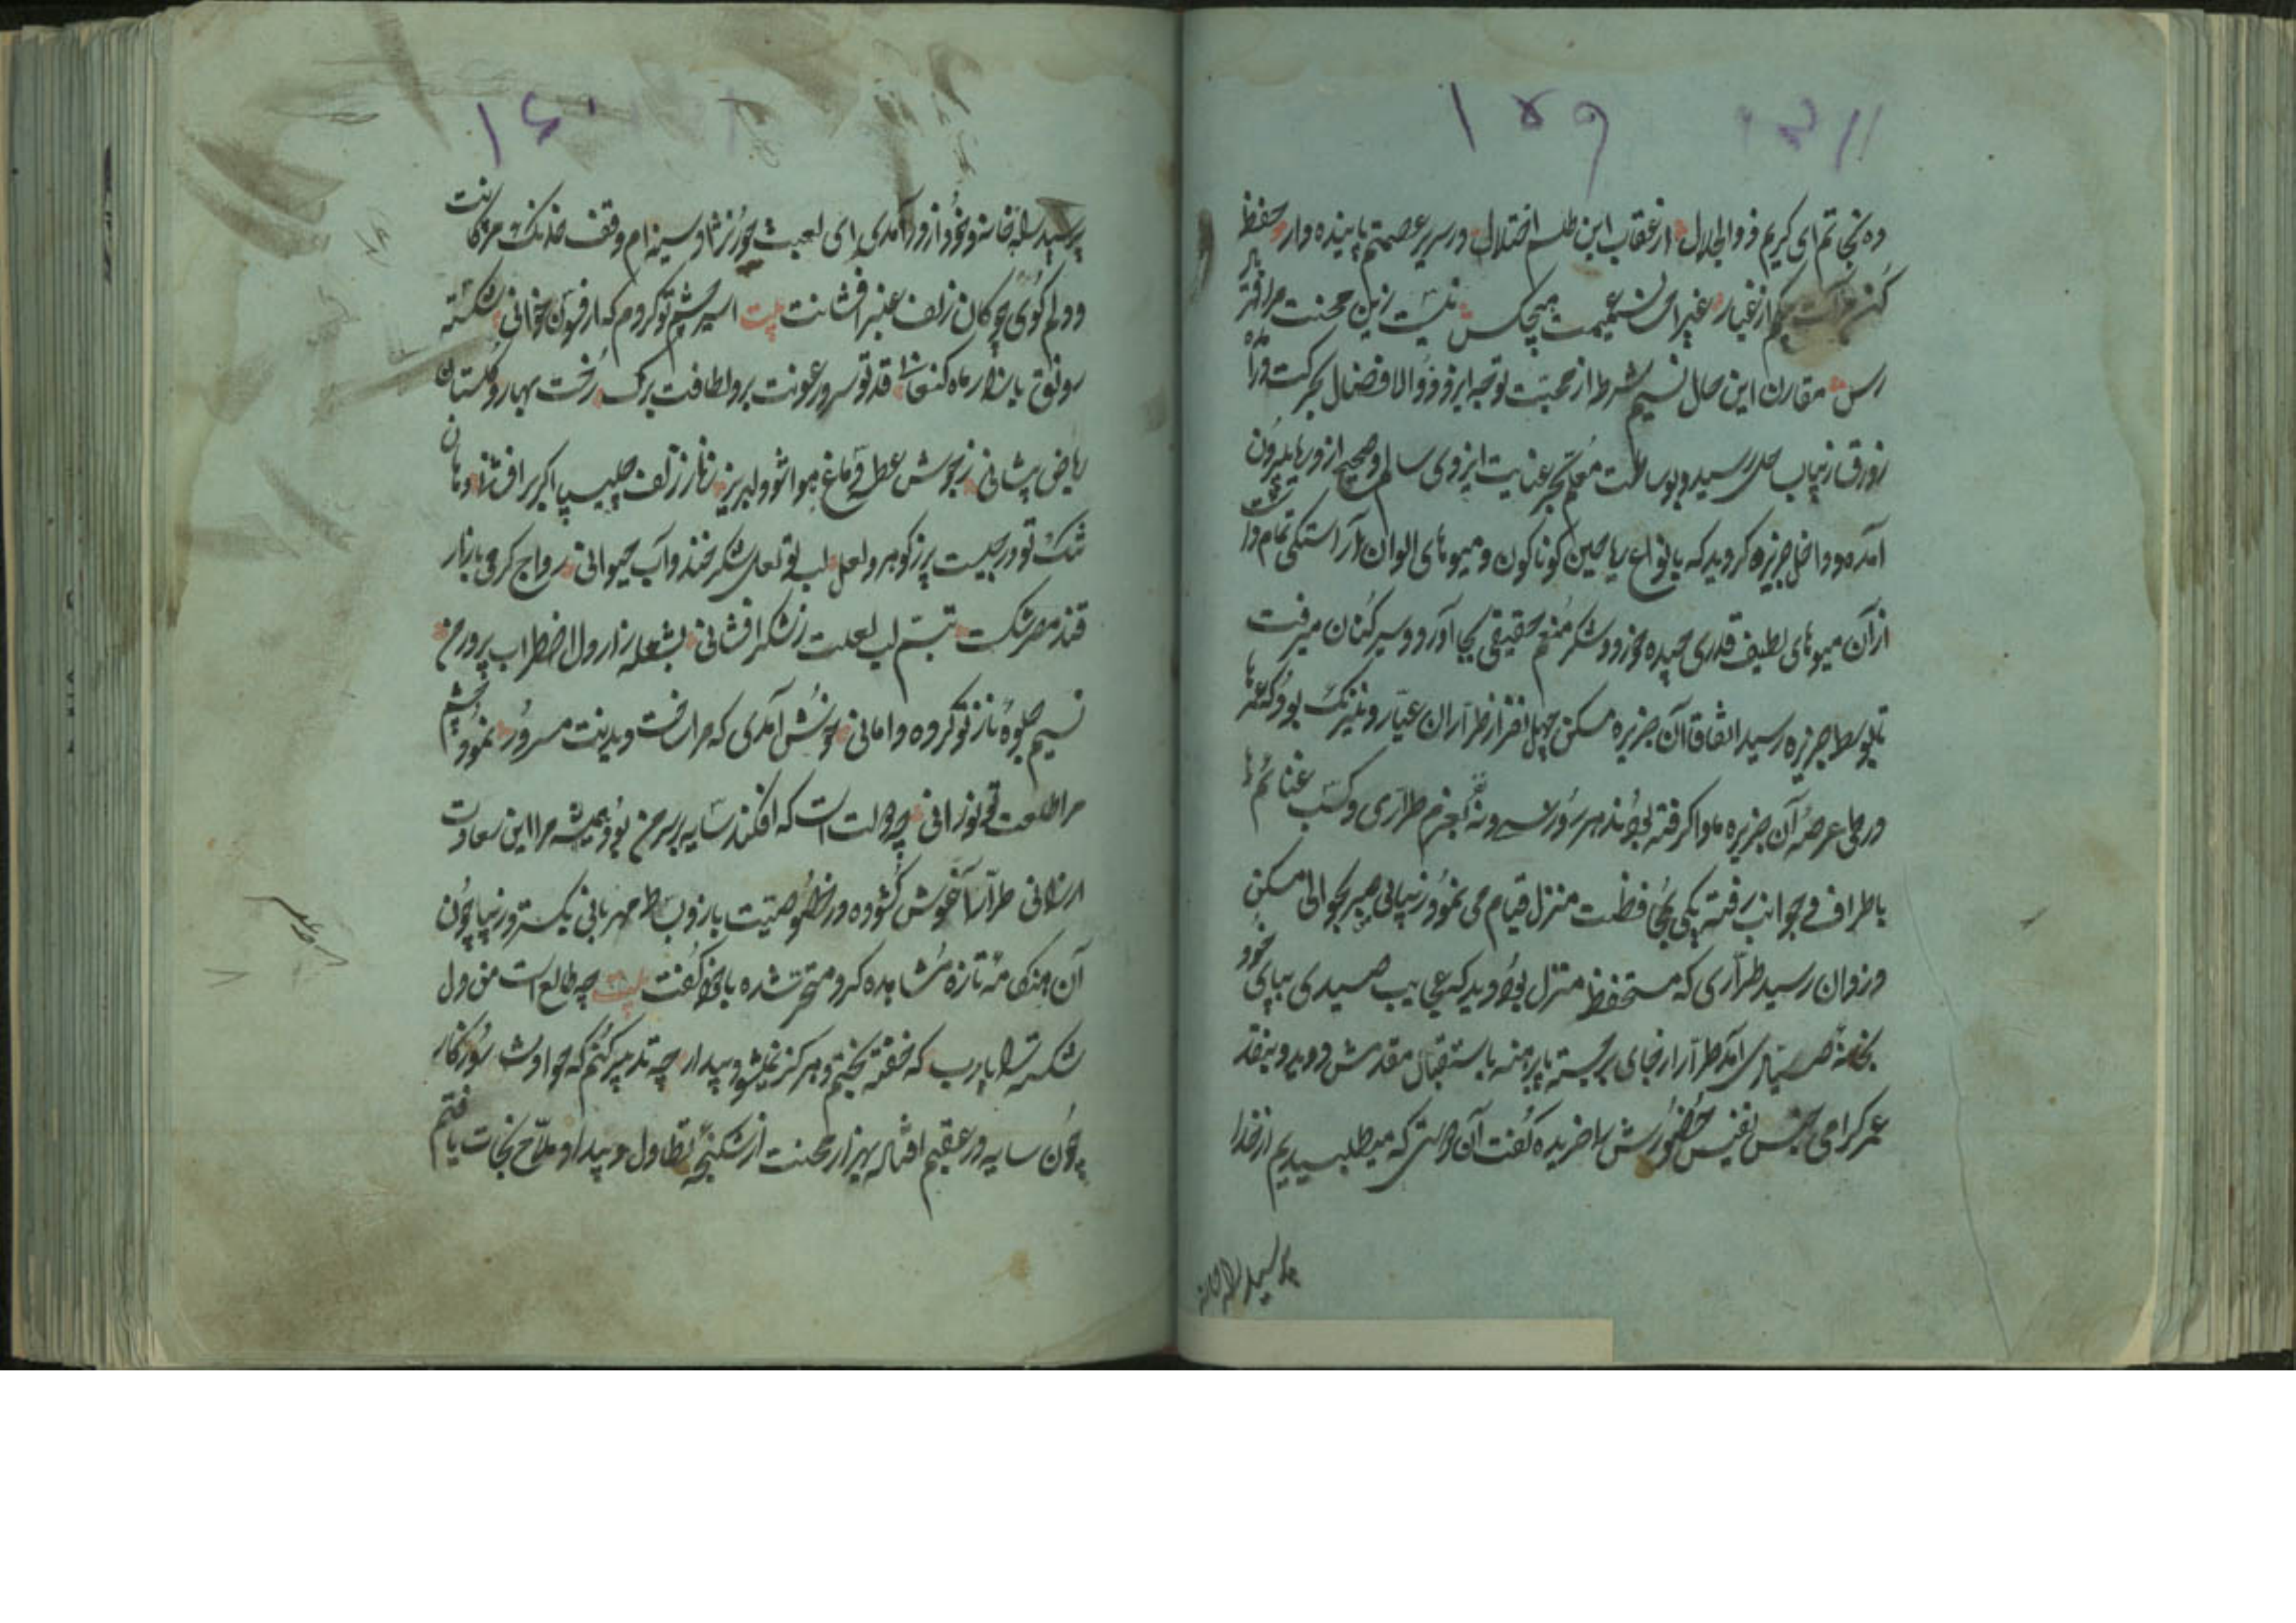 ۱۵۹
ده نجاتم ای کریم ذوالجلال از عقاب این طلسم اختلال در سریر عصمتم پاینده دار حفظ
کن از غیار غیر احسان عمیمت هیچکس نیست زین محنت مرا فریاد
رس مقارن این حال نسیم شرطه از محبت توجه ایزد ذوالافضال بحرکت درآمده
زورق زیبا بساحل رسید و بوساطت معلم بحر عنایت ایزدی سالم و صحیح از ورطه بیرون
آمده و داخل جزیره کردید که بانواع ریاحین کوناکون و میوهای الوان آراستکی تمام داشت
از آن میوهای لطیف قدری چیده خورد و شکر منعم حقیقی بجا آورد و سیر کنان میرفت
تا بوسط جزیره رسید اتفاقا آن جزیره مسکن چهل نفر از طراران عیار و نیرنک بود که غنها
در طی عرصه آن جزیره ماوا کرفته بودند هر روز سی و نه نفر بعزم طراری و کسب غنائم ها
باطراف و جوانب رفته یکی بمحافظت منزل قیام می نمود زیبای مهر بحوالی مسکن
دزدان رسید طراری که مستحفظ منزل بود دید که عجایب صیدی بپای خود
بخانه صیاد آمد طرار از جای برجسته پا برهنه باستقبال مقدمش دوید و بنقد
عمر کرامی جنس نفیس حضورش را خریده کفت آن دولتی که میطلبیدیم از خدا
پرسید راه خانه
۱۶۰
پرسید راه خانه و خود از در آمدی ای لعبت حورنژاد سینه ام وقف خدنک مژکانت
و دلم کوی چوکان زلف عنبر افشانت بیت اسیر چشم تو کردم که از فسون خوانی شکسته
رونق بازار ماه کنعانی قد تو سرو رعونت برو لطافت برک رخت بهار و کلستان
ریاض پیشانی ز جوش عطر دماغ هوا شود لبریز زتار زلف چلیپا اکر برافشانی دهان
تنک تو درجیست پر ز کوهر و لعل لب تو لعل شکرخند و آب حیوانی رواج کرمی بازار
قند مصر شکست تبسم لب لعلت ز شکرافشانی بشعله زار دل اضطراب پرور من
نسیم جلوه ناز تو کرده دامانی خوش آمدی که مرا ساخت دیدنت مسرور نمود چشم
مرا طلعت تو نورانی چه دولت است که افکند سایه بر سر من بود همیشه مرا این سعادت
ارزانی طرار آغوش کشوده در خصوصیت باز و بساط مهربانی بکسترد زیبا چون
آن هنکامه تازه مشاهده کرد متحیر شده با خود کفت بیت چه طالع است من دل
شکسته را یا رب که خفته بختم و هرکز نمیشود بیدار چه تدبیر کنم که حوادث روزکار
چون سایه در عقبم افتاده بهزار محنت از شکنجه تطاول و بیداد ملاح نجات یافتم